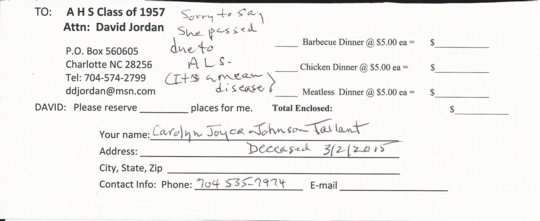 TO: A H S Class of 1957
Attn: David Jordan
P.O. Box 560605
Charlotte NC 28256
Tel: 704-574-2799
ddjordan@msn.com
Sorry to say
She passed
due to
ALS-
(Its a mean
disease)
Barbecue Dinner @ $5.00 ea = $
Chicken Dinner @ $5.00 ea = $
Meatless Dinner @ $5.00 ea = $
DAVID: Please reserve ________ places for me. Total Enclosed: $
Your name: Carolyn Joyce Johnson Tallant
Address: Deceased 3/2/2015
City, State, Zip
Contact Info: Phone: 704 535-7974 E-mail